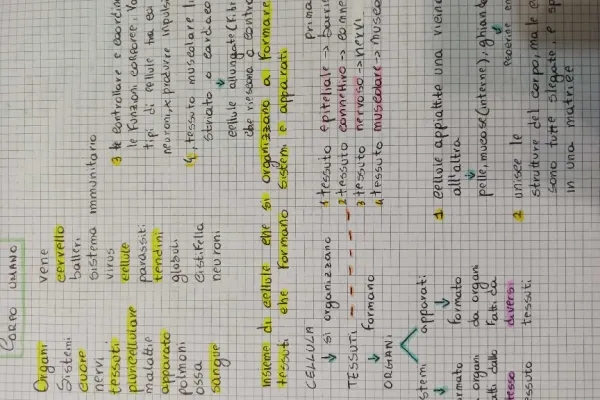 CORPO UMANO
Organi
Sistemi
cuore
nervi
tessuti
pluricellulare
malattie
apparato
polmoni
ossa
sangue
vene
cervello
sistema immunitario
virus
cellule
parassiti
tendini
globuli
cistifella
neuroni
Insieme di cellule che si organizzano a formare
tessuti che formano sistemi e apparati
CELLULA
↓ si organizzano
TESSUTI - - - - -
↓ formano
ORGANI
1 tessuto epiteliale →
2 tessuto connettivo →
3 tessuto nervoso → nervi
4 tessuto muscolare →
apparati
↓
formato
da organi
fatti da
diversi
tessuti
1. cellule appiattite una
all'altra
↓
pelle, mucose (interne), 
2 unisce le
strutture del corpo, ma le
sono tutte slegate e
in una matrice
3 
controllare e
le funzioni corporee.
tipi di cellule tra
neuroni, x produrre impulsi
4. tessuto muscolare
striato o cardiaco
↓
cellule allungate
che riescono a